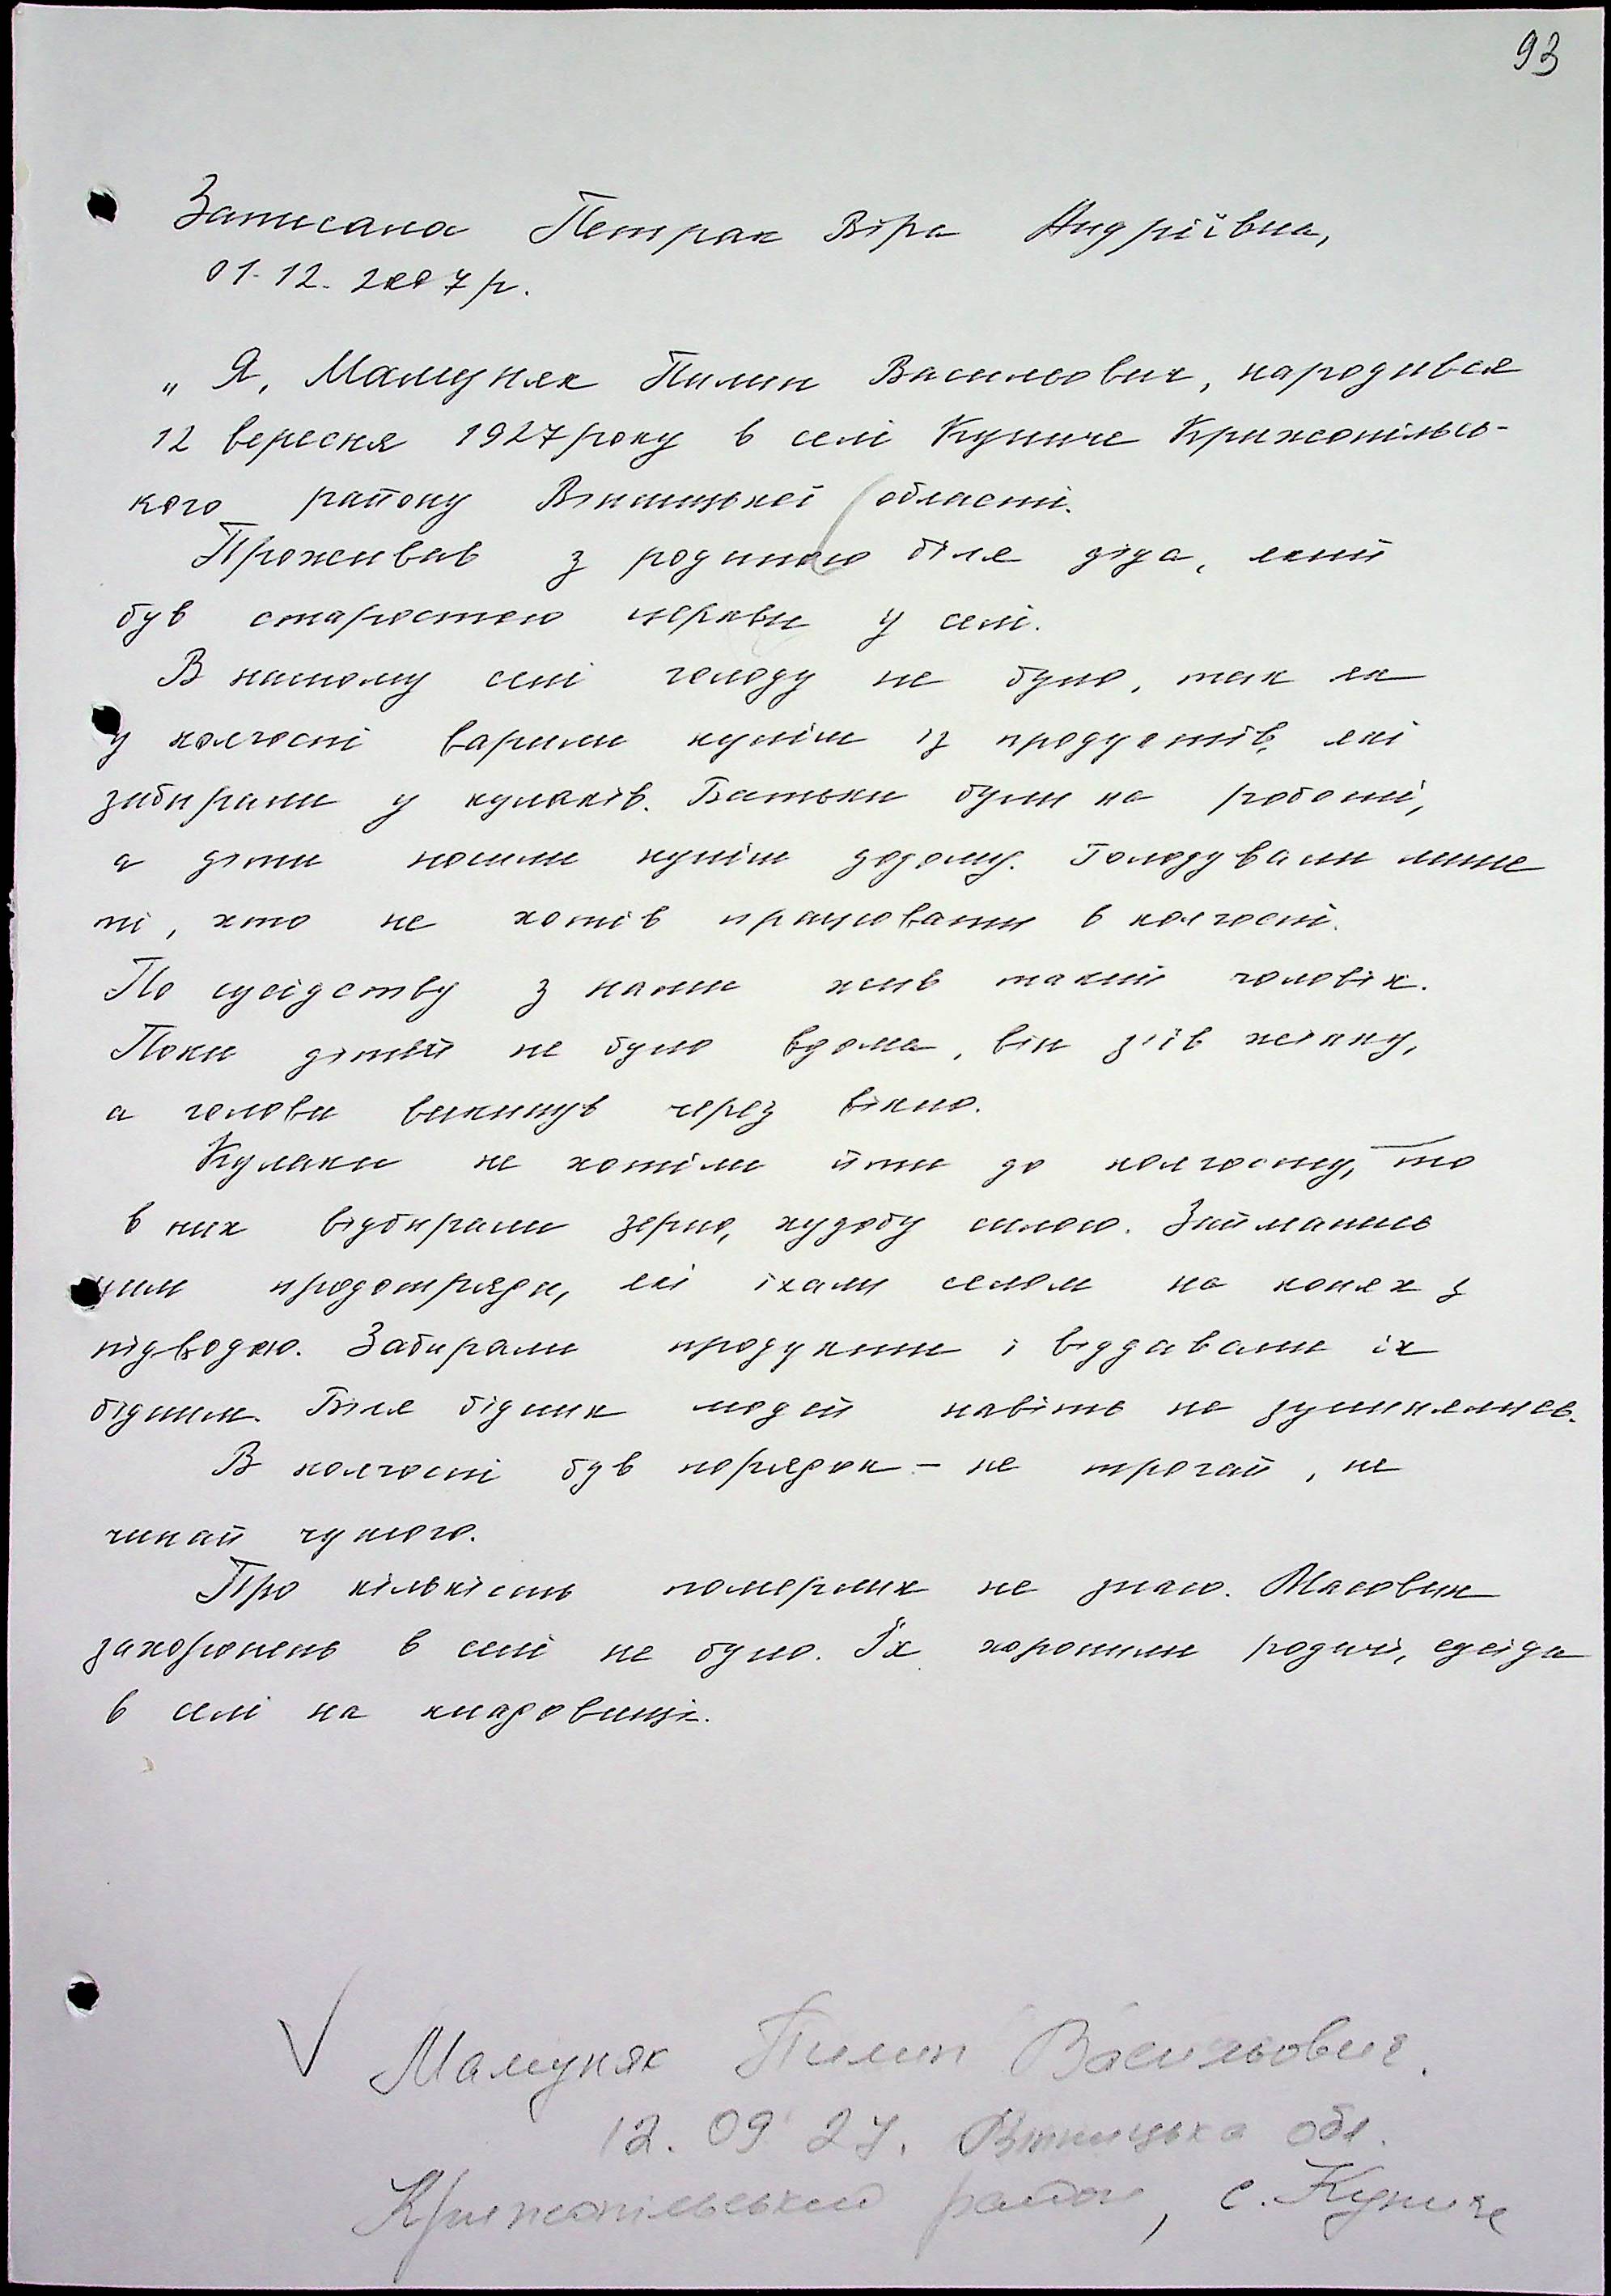 93
Записала Петрак Віра Андріївна,
01.12.2007 р.
„Я, Мамуняк Пилип Васильович, народився
12 вересня 1927 року в селі Куниче Крижопільсь-
кого району Вінницької області.
Проживав з родиною біля діда, який
був старостою церкви у селі.
В нашому селі голоду не було, так як
у колгоспі варили куліш із продуктів, які
забирали у кулаків. Батьки були на роботі,
а діти носили куліш додому. Голодували лише
ті, хто не хотів працювати в колгоспі.
По сусідству з нами жив такий чоловік.
Поки дітей не було вдома, він з'їв жінку,
а голови викинув через вікно.
Кулаки не хотіли йти до колгоспу, то
в них відбирали зерно, худобу силою. Займались
цим продотряди, які їхали селом на конях з
підводою. Забирали продукти і віддавали їх
бідним. Біля бідних людей навіть не зупинялись.
В колгоспі був порядок – не трогай, не
чипай чужого.
Про кількість померлих не знаю. Масових
захоронень в селі не було. Їх хоронили родичі, сусіди
в селі на кладовищі.
V Мамуняк Пилип Васильович.
12.09 27. Вінницька обл.
Крижопільський район, с. Куниче